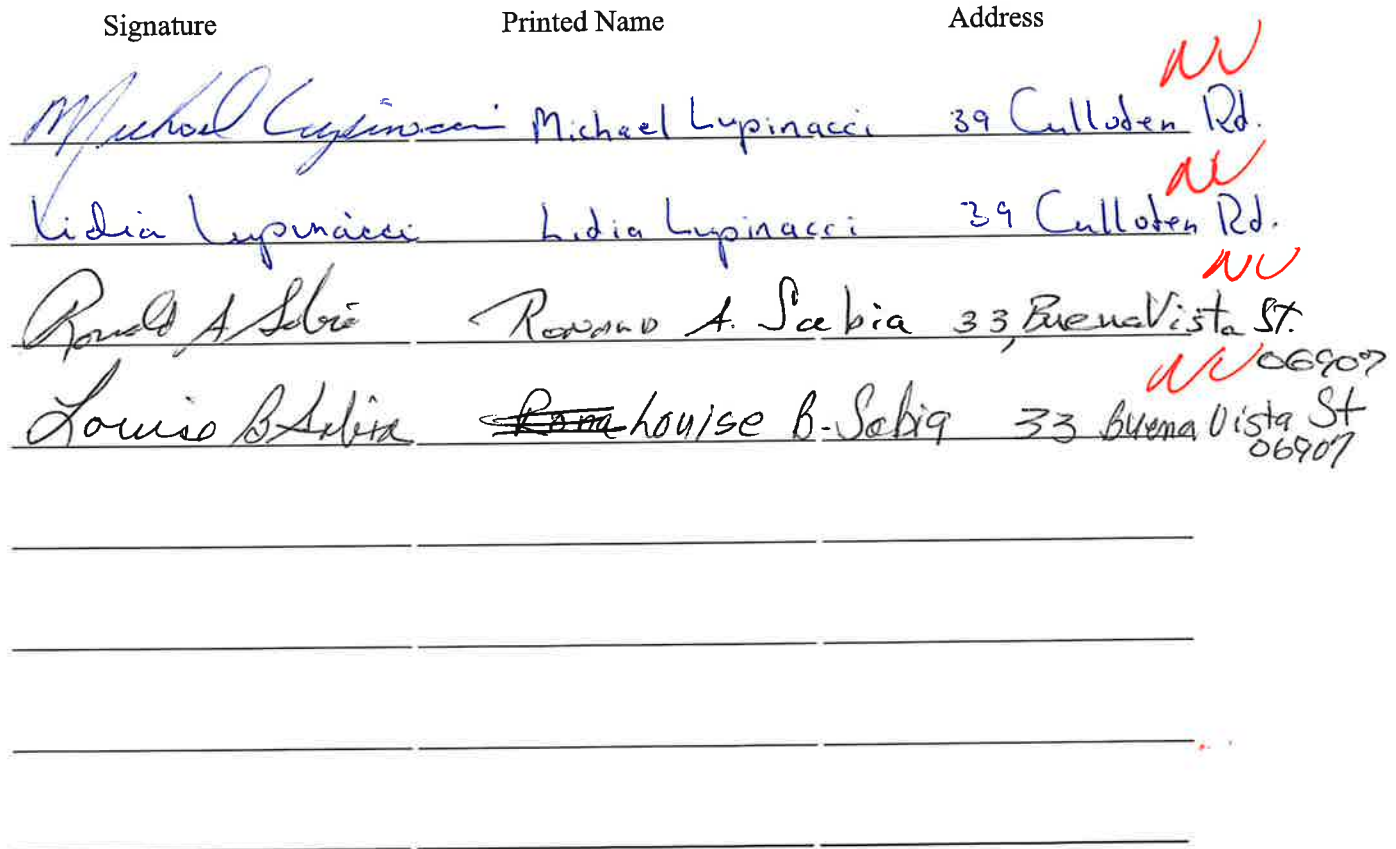 Signature Printed Name Address
NV
Michael Lupinacci Michael Lupinacci 39 Culloden Rd.
NV
Lidia Lupinacci Lidia Lupinacci 39 Culloden Rd.
NV
Ronald A Sabia Ronald A. Sabia 33 Buena Vista St.
NV 06907
Louise B Sabia Rona Louise B. Sabia 33 Buena Vista St
06907